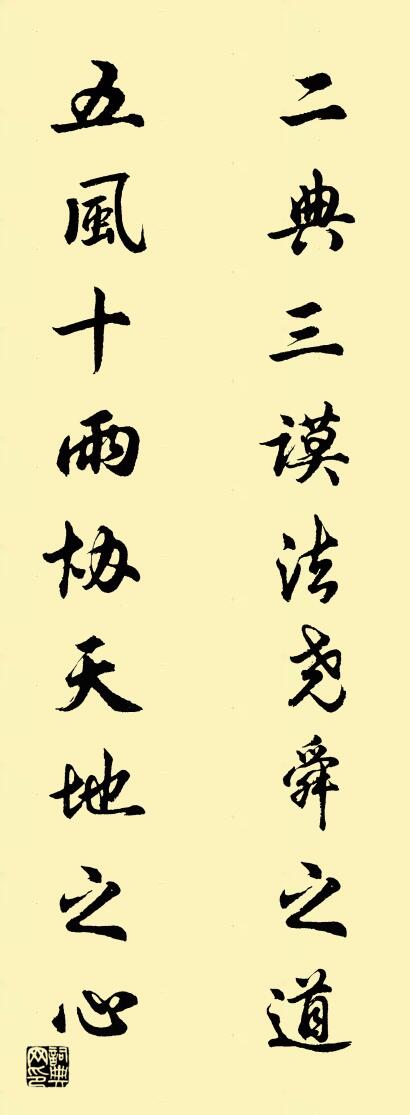 二典三谟法尧舜之道
五風十雨协天地之心
詞典網印